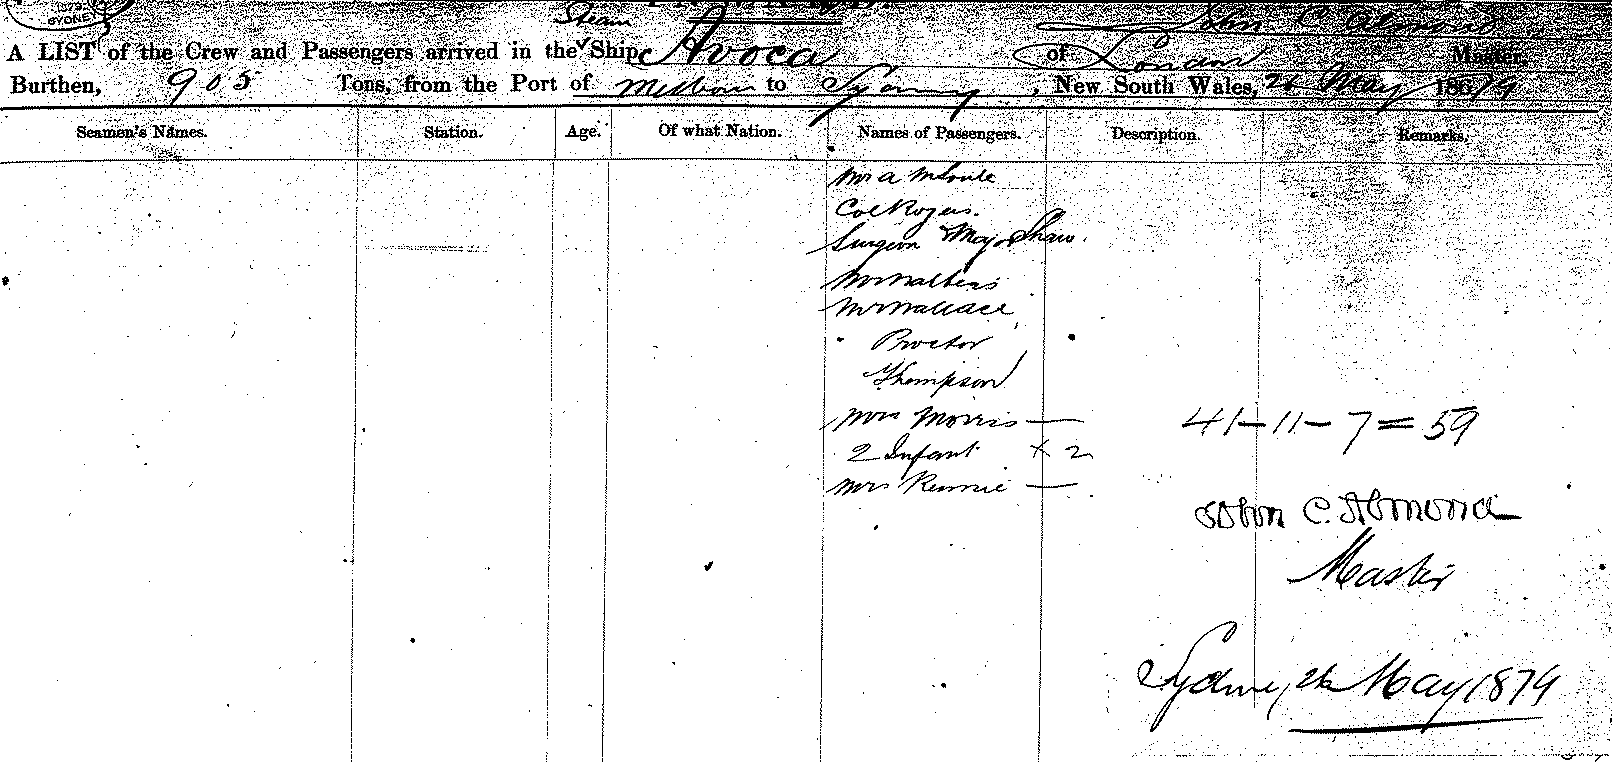 1879
SYDNEY
Steam
John C Almond
A LIST of the Crew and Passengers arrived in the Ship Avoca of London Master,
Burthen, 905 Tons, from the Port of Melbourn to Sydney, New South Wales, 26 May 1879
Seamen's Names. Station. Age. Of what Nation. Names of Passengers. Description. Remarks.
Mr A
Col Rogers.
Surgeon Major Shaw.
Mr Walters
Mr Wallace
Proctor
Thompson
Mrs Morris —
41-11-7=59
2 Infant × 2
Mrs Rennie —
John C. Almond
Master
Sydney, 26 May 1879